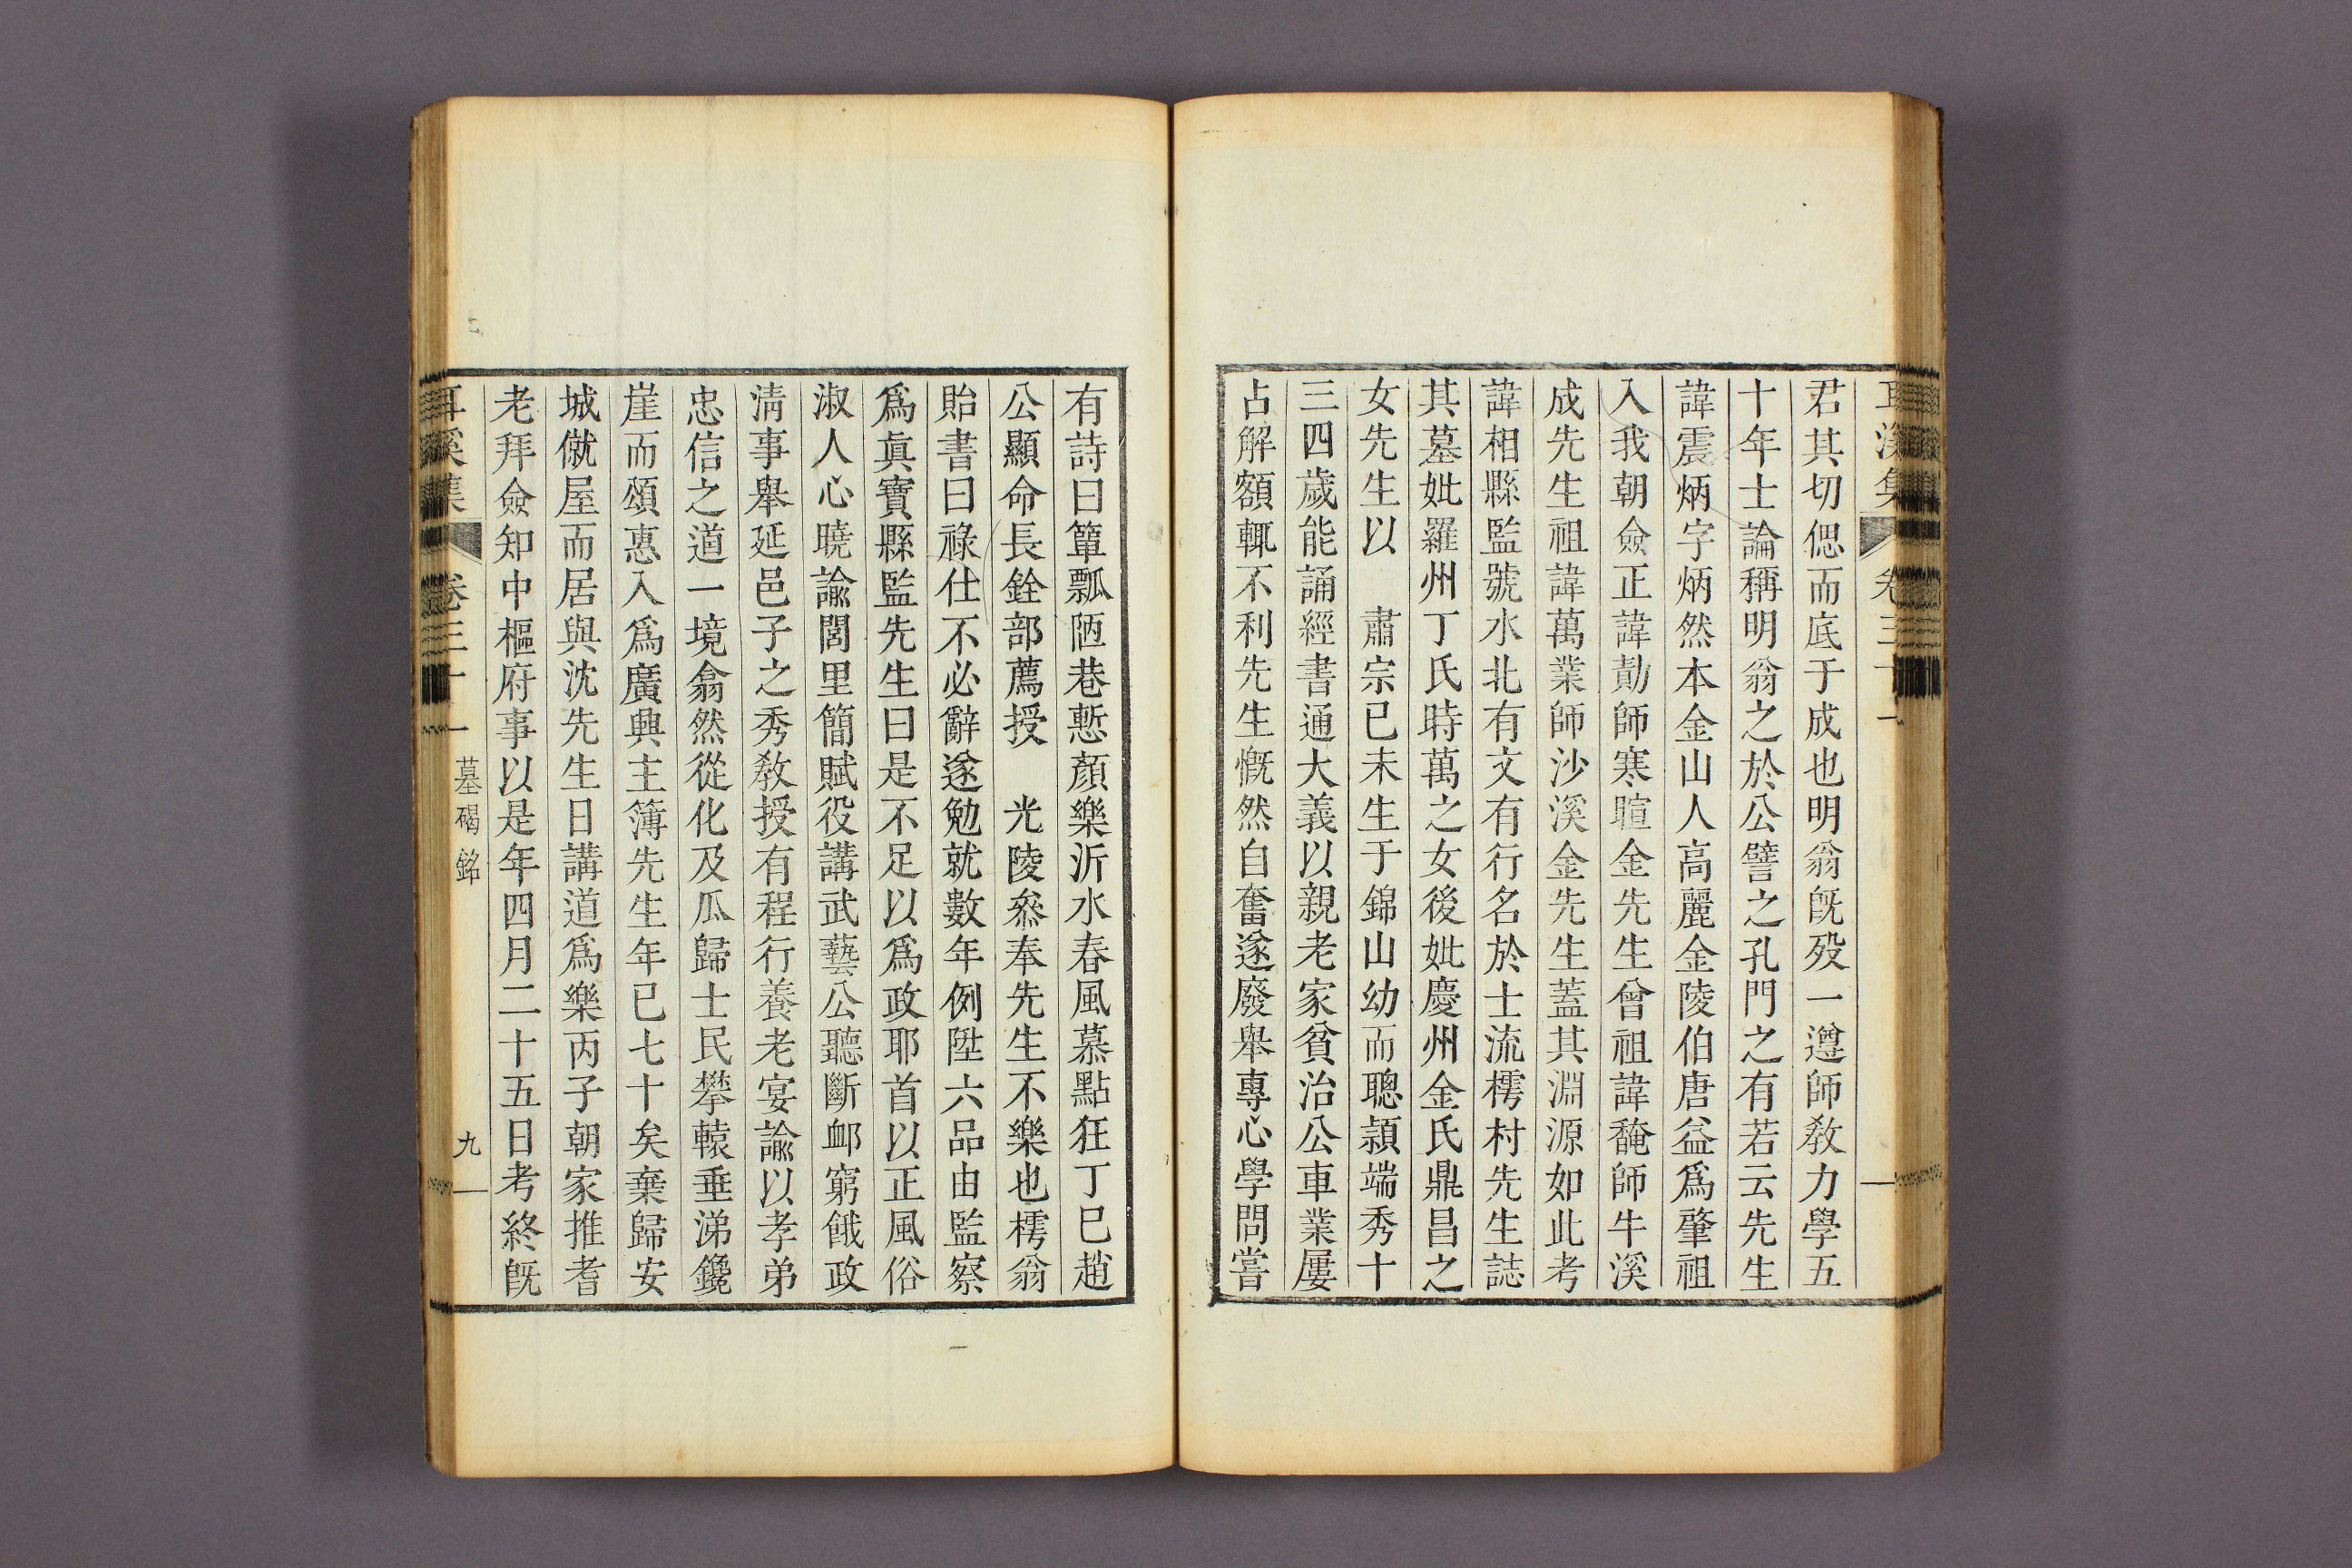 耳溪集 卷三十一
君其切偲而底于成也明翁旣歿一遵師敎力學五
十年士論稱明翁之於公譬之孔門之有若云先生
諱震炳字炳然本金山人高麗金陵伯唐益爲肇祖
入我朝僉正諱勣師寒暄金先生曾祖諱馣師牛溪
成先生祖諱萬業師沙溪金先生蓋其淵源如此考
諱相縣監號水北有文有行名於士流樗村先生誌
其墓妣羅州丁氏時萬之女後妣慶州金氏鼎昌之
女先生以　肅宗已未生于錦山幼而聰穎端秀十
三四歲能誦經書通大義以親老家貧治公車業屢
占解額輒不利先生慨然自奮遂廢擧專心學問嘗
有詩曰簞瓢陋巷慙顏樂沂水春風慕點狂丁巳趙
公顯命長銓部薦授　光陵叅奉先生不樂也樗翁
貽書曰祿仕不必辭遂勉就數年例陞六品由監察
爲眞寶縣監先生曰是不足以爲政耶首以正風俗
淑人心曉諭閭里簡賦役講武藝公聽斷卹窮餓政
淸事擧延邑子之秀敎授有程行養老宴諭以孝弟
忠信之道一境翕然從化及瓜歸士民攀轅垂涕鑱
崖而頌惠入爲廣興主簿先生年已七十矣棄歸安
城僦屋而居與沈先生日講道爲樂丙子朝家推耆
老拜僉知中樞府事以是年四月二十五日考終旣
耳溪集 卷三十一 墓碣銘 九